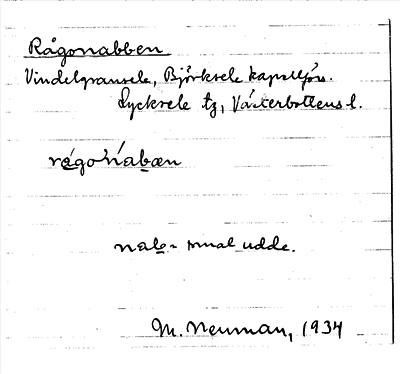 Rågonabben
Vindelgransele, Björksele kapellförs.
Lycksele tg, Västerbottens l.
rågonabæn
nab = smal udde.
M. Neuman, 1934